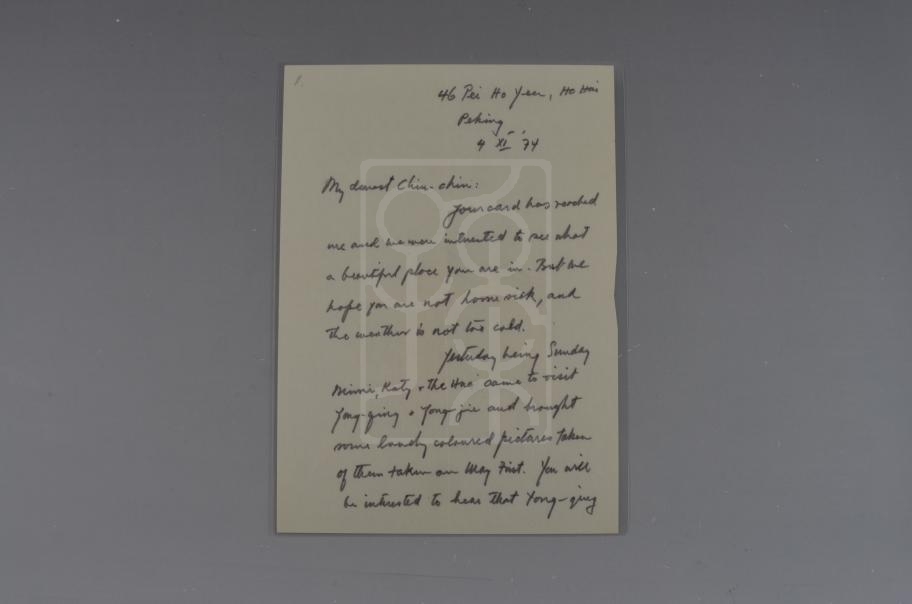 1.
46 Pei Ho Yen, Ho Hai
Peking
4 XI '74
My dearest Chin-chin:
Your card has reached
me and we were interested to see what
a beautiful place you are in. But we
hope you are not home sick, and
the weather is not too cold.
Yesterday being Sunday
Minni, Katy + the Hao came to visit
Yong-qing + Yong-jie and brought
some lovely coloured pictures taken
of them taken on May First. You will
be interested to hear that Yong-qing